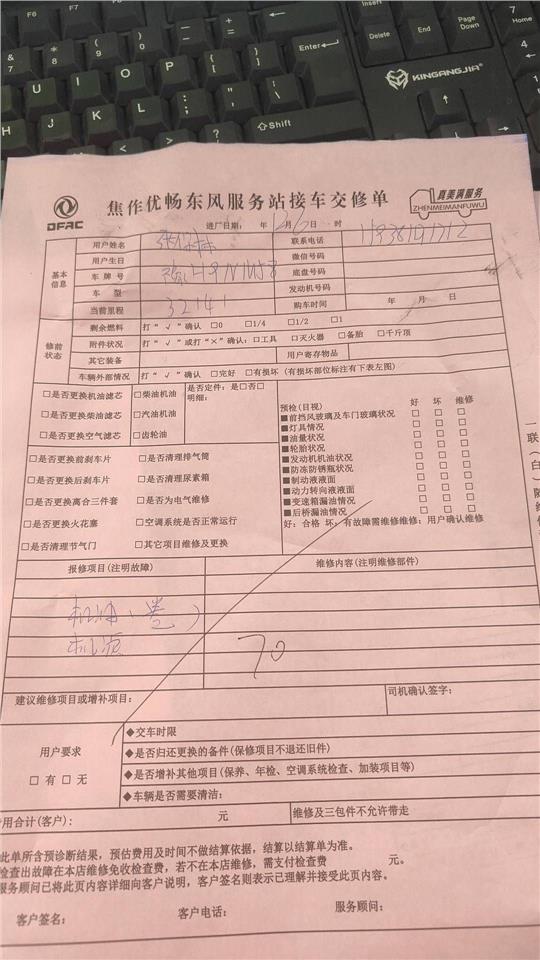 &
7
*
8
(
9
)
0
Insert
End
Page
Down
Delete
7
Home
4
Y U I O P
Enter
H J K L
N M
Shift
KINGANGJIA
DFAC
焦作优畅东风服务站接车交修单
真美满服务
ZHENMEIMANFUWU
进厂日期: 年 12月6日 时
基本
信息
用户姓名
联系电话
用户生日 微信号码
车牌号 底盘号码
车 型 发动机号码
当前里程 32141 购车时间 年 月 日
修前
状态
剩余燃料 打“√”确认 □0 □1/4 □1/2 □1
附件状况 打“√”或打“×”确认: □工具 □灭火器 □备胎 □千斤顶
其它装备 用户寄存物品
车辆外部情况 打“√”确认 □完好 □有损坏 (有损坏部位标注有下表左图)
□是否更换机油滤芯 □柴油机油 是否定件: 是□否□
明细:
□是否更换柴油滤芯 □汽油机油
□是否更换空气滤芯 □齿轮油
□是否更换前刹车片 □是否清理排气筒
□是否更换后刹车片 □是否清理尿素箱
□是否更换离合三件套 □是否为电气维修
□是否更换火花塞 □空调系统是否正常运行
□是否清理节气门 □其它项目维修及更换
预检(目视) 好 坏 维修
■前挡风玻璃及车门玻璃状况 □ □ □
■灯具情况 □ □ □
■油量状况 □ □ □
■轮胎状况 □ □ □
■发动机机油状况 □ □ □
■防冻防锈瓶状况 □ □ □
■制动液液面 □ □ □
■动力转向液液面 □ □ □
■变速箱漏油情况 □ □ □
■后桥漏油情况 □ □ □
好: 合格 坏: 有故障需维修维修: 用户确认维修
一
联
(
白
)
报修项目(注明故障) 维修内容(注明维修部件)
机油
机滤 70
建议维修项目或增补项目: 司机确认签字:
用户要求
□有 □无
◆交车时限
◆是否归还更换的备件(保修项目不退还旧件)
◆是否增补其他项目(保养、年检、空调系统检查、加装项目等)
◆车辆是否需要清洁:
用合计(客户): 元 维修及三包件不允许带走
此单所含预诊断结果，预估费用及时间不做结算依据，结算以结算单为准。
检查出故障在本店维修免收检查费，若不在本店维修，需支付检查费 元。
服务顾问已将此页内容详细向客户说明，客户签名则表示已理解并接受此页内容。
客户签名: 客户电话: 服务顾问: